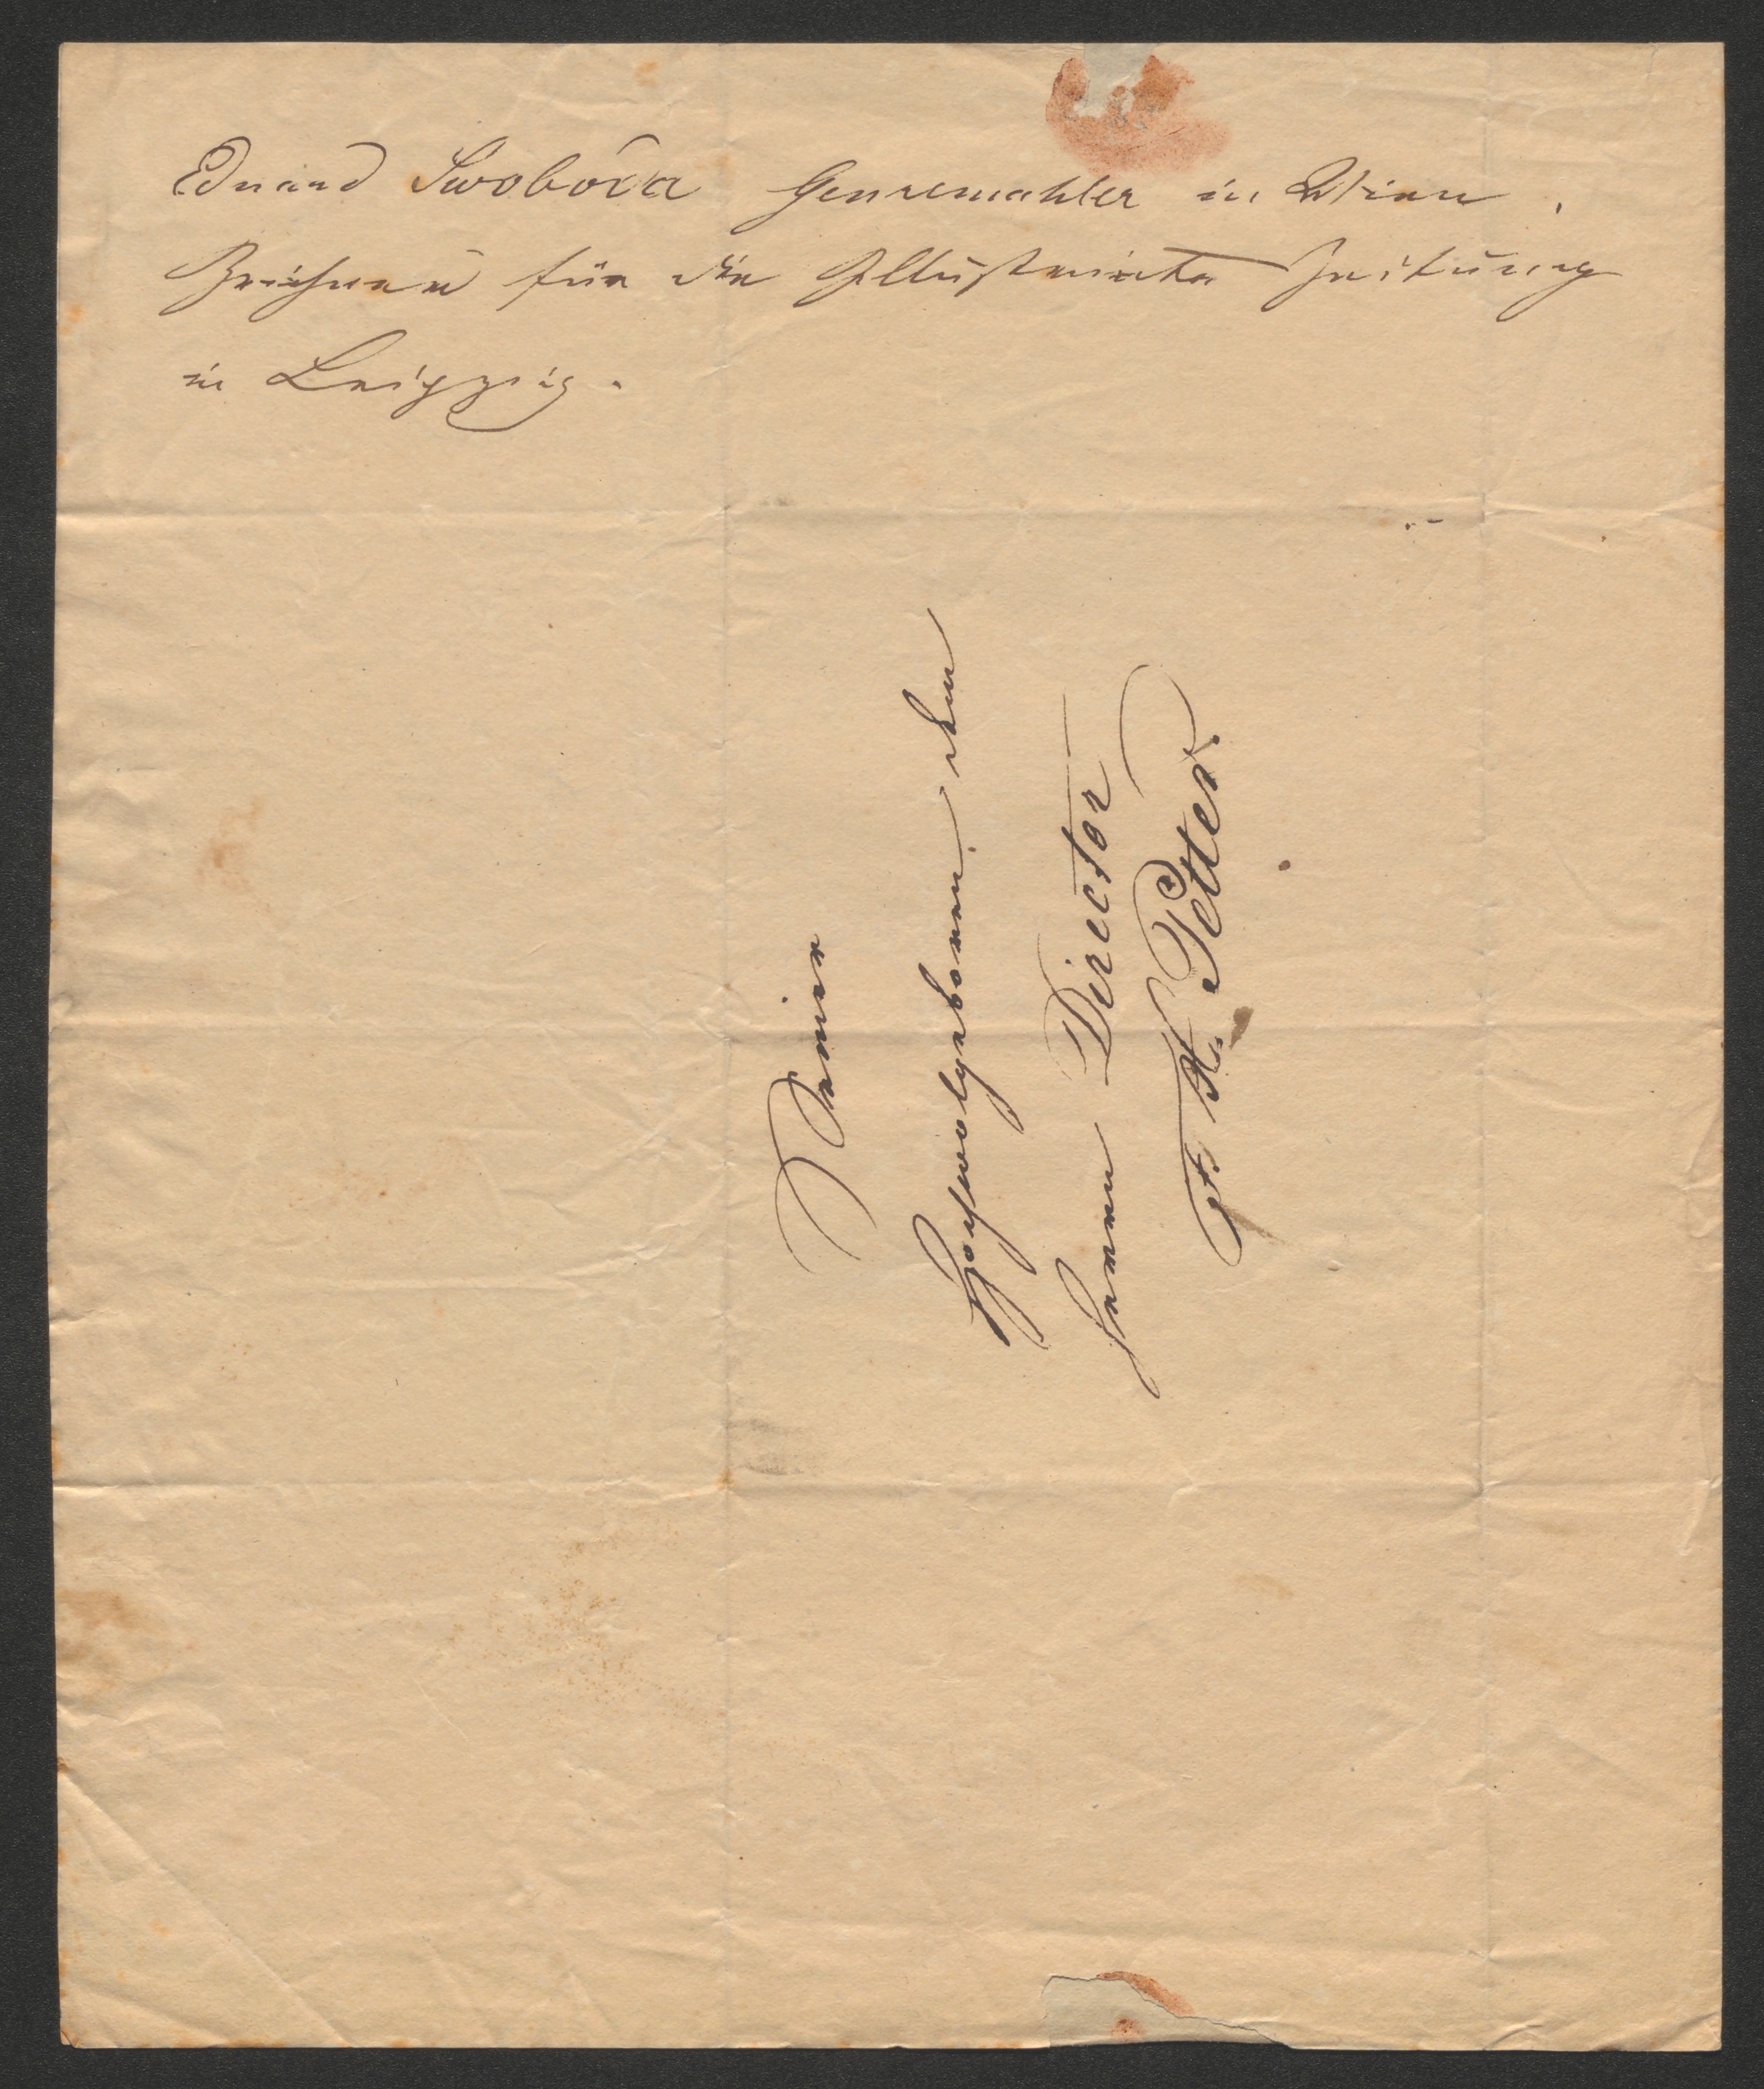 Eduard Swoboda Genremahler in Wien,
Zeichner für die Illustrirte Zeitung
in Leipzig.
Seiner
Hochwolgeboren, dem
Herrn Director
Petter.